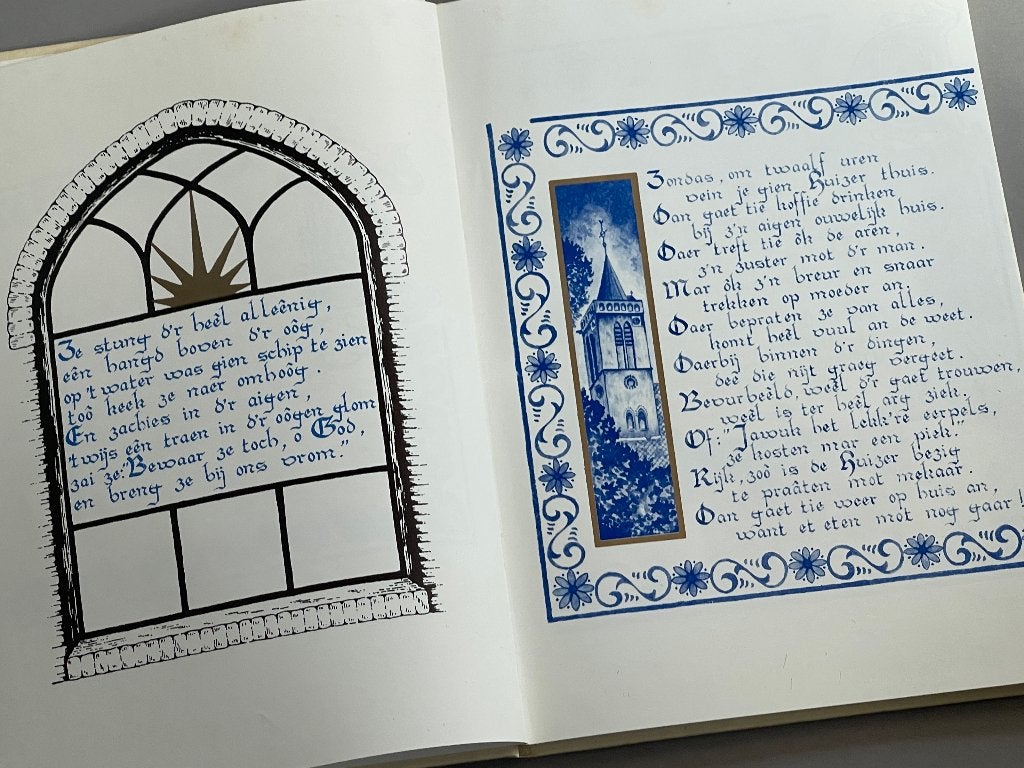 Ze stung d'r heêl alleênig,
eên hangd boven d'r oôg,
op 't water was gien schip te zien
toô keek ze naer omhoôg.
En zachies in d'r aigen,
'twijs eên traen in d'r oôgen glom
zai ze: "Bewaar ze toch, o God,
en breng ze bij ons vrom."
Zondas, om twaalf uren
vein je gien Huizer thuis.
Dan gaet tie koffie drinken
bij z'n aigen ouwelijk huis.
Daer treft tie ôk de aren,
z'n zuster mot d'r man.
Mar ôk z'n breur en snaar
trekken op moeder an.
Daer bepraten ze van alles,
komt heêl vuul an de weet.
Daerbij binnen d'r dingen,
dee die nijt graeg vergeet.
Bevurbeeld, weêl d'r gaet trouwen,
weêl is ter heêl arg ziek.
Of: "Jawuk het lekk're eerpels,
ze kosten mar een piek."
Rijk, zoô is de Huizer bezig
te praâten mot mekaar.
Dan gaet tie weer op huis an,
want et eten mot nog gaar!